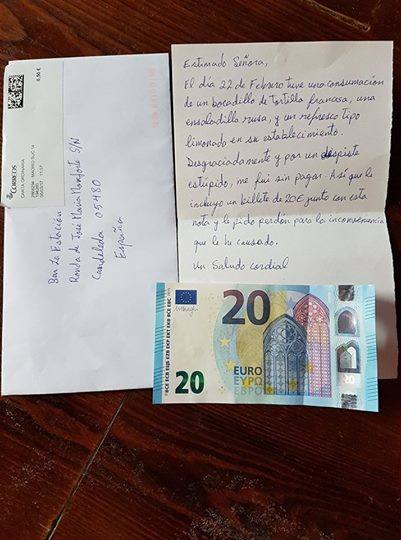 Estimado Señora,
El día 22 de Febrero tuve una consumación
de un bocadillo de Tortilla francesa, una
ensaladilla rusa, y un refresco tipo
limonado en su establecimiento.
Desgraciadamente y por un despiste
estupido, me fui sin pagar. Así que le
incluyo un billete de 20€ junto con esta
nota y le pido perdón para la inconveniencia
que le he causado.
Un Saludo cordial
Bar La Estación
Ronda de Jose Maria Monforte S/N
Candeleda 05480
España
CORREOS
CARTA ORDINARIA
20
20
EURO
ΕΥΡΩ
ЕВРО